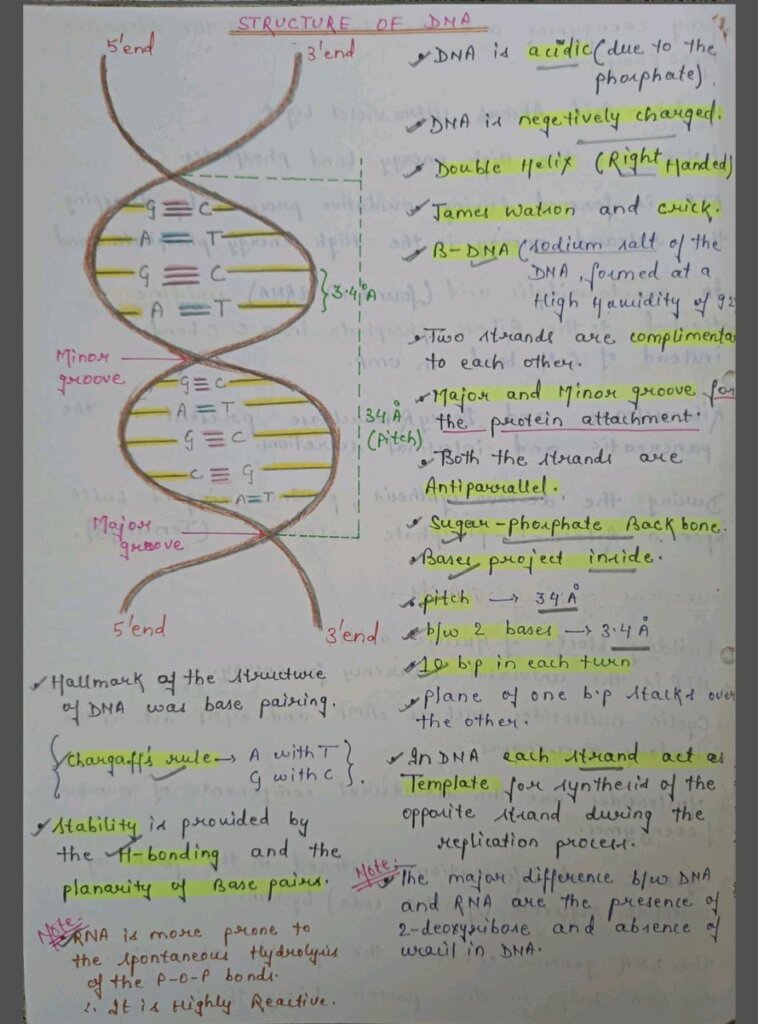 STRUCTURE OF DNA
5'end
3'end
G ≡ C
A = T
G ≡ C
A = T
3.4°A
Minor
groove
G ≡ C
A = T
G ≡ C
C ≡ G
A = T
34 Å
(Pitch)
Major
groove
5'end
3'end
Hallmark of the structure
of DNA was base pairing.
Chargaff's rule → A with T
G with C
Stability is provided by
the H-bonding and the
planarity of Base pairs.
Note:
RNA is more prone to
the spontaneous Hydrolysis
of the P-O-P bonds.
∴ It is Highly Reactive.
DNA is acidic (due to the
phosphate)
DNA is negetively charged.
Double Helix (Right Handed)
James Watson and crick.
B-DNA (sodium salt of the
DNA, formed at a
High Humidity of 92
Two strands are complimenta
to each other.
Major and Minor groove for
the protein attachment.
Both the strands are
Antiparrallel.
Sugar-phosphate Backbone.
Bases project inside.
pitch → 34 Å
b/w 2 bases → 3.4 Å
10 b.p in each turn
plane of one b.p stacks over
the other.
In DNA each strand act as
Template for synthesis of the
opposite strand during the
replication process.
Note:
The major difference b/w DNA
and RNA are the presence of
2-deoxyribose and absence of
uracil in DNA.